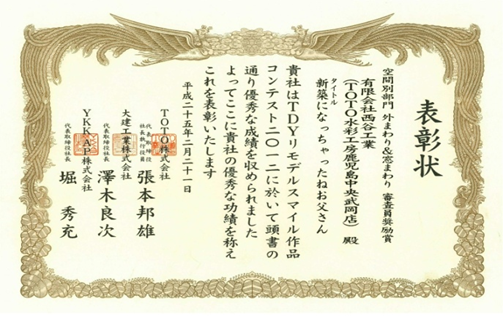 表彰状
空間別部門 外まわり&窓まわり 審査員奨励賞
有限会社西谷工業
(TOTO水彩工房鹿児島中央武岡店) 殿
タイトル
新築になっちゃったねお父さん
貴社はTDYリモデルスマイル作品
コンテスト二〇一二に於いて頭書の
通り優秀な成績を収められました
よってここに貴社の優秀な功績を称え
これを表彰いたします
平成二十五年二月二十一日
TOTO株式会社
代表取締役
社長執行役員 張本邦雄
大建工業株式会社
代表取締役社長 澤木良次
YKKAP株式会社
代表取締役社長 堀秀充